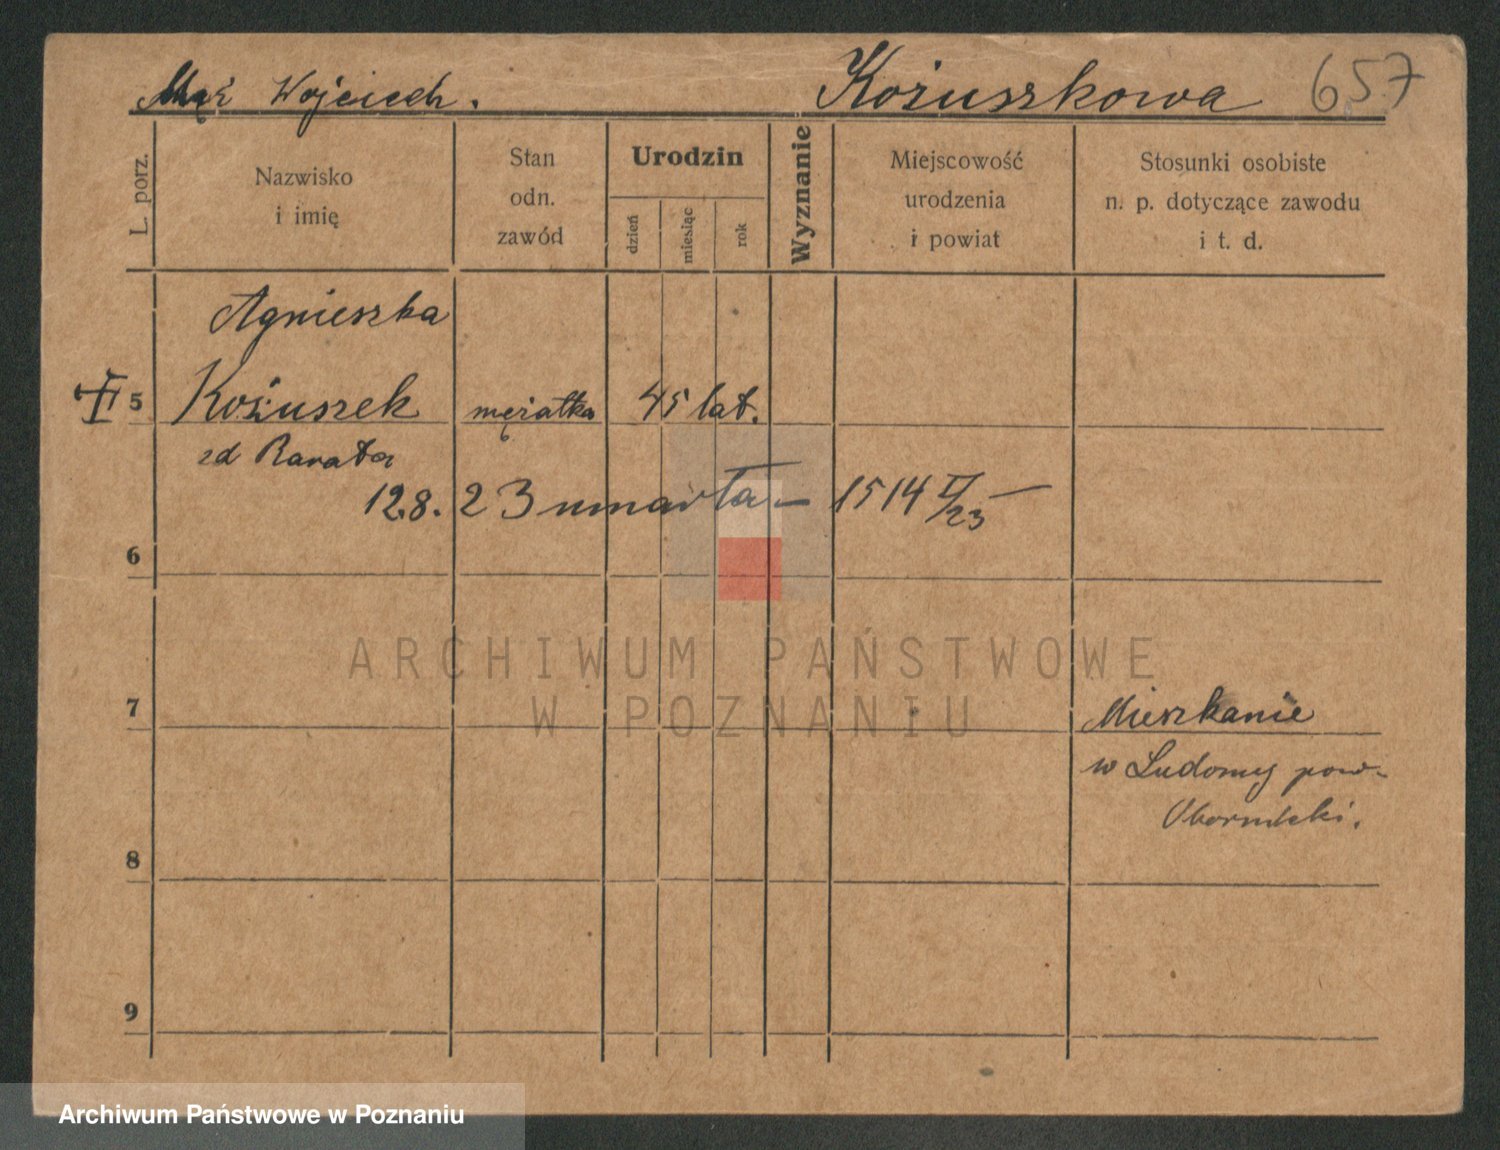 Mąż Wojciech. Kożuszkowa 657
L. porz.
Nazwisko
i imię
Stan
odn.
zawód
Urodzin
dzień
miesiąc
rok
Wyznanie
Miejscowość
urodzenia
i powiat
Stosunki osobiste
n. p. dotyczące zawodu
i t. d.
Agnieszka
5 Kożuszek mężatka 45 lat.
zd Ravata
12.8. 23 umarła — 1514 II/23 —
6
7 Mieszkanie
w Ludomy pow.
Obornicki.
8
9
ARCHIWUM PAŃSTWOWE
W POZNANIU
Archiwum Państwowe w Poznaniu